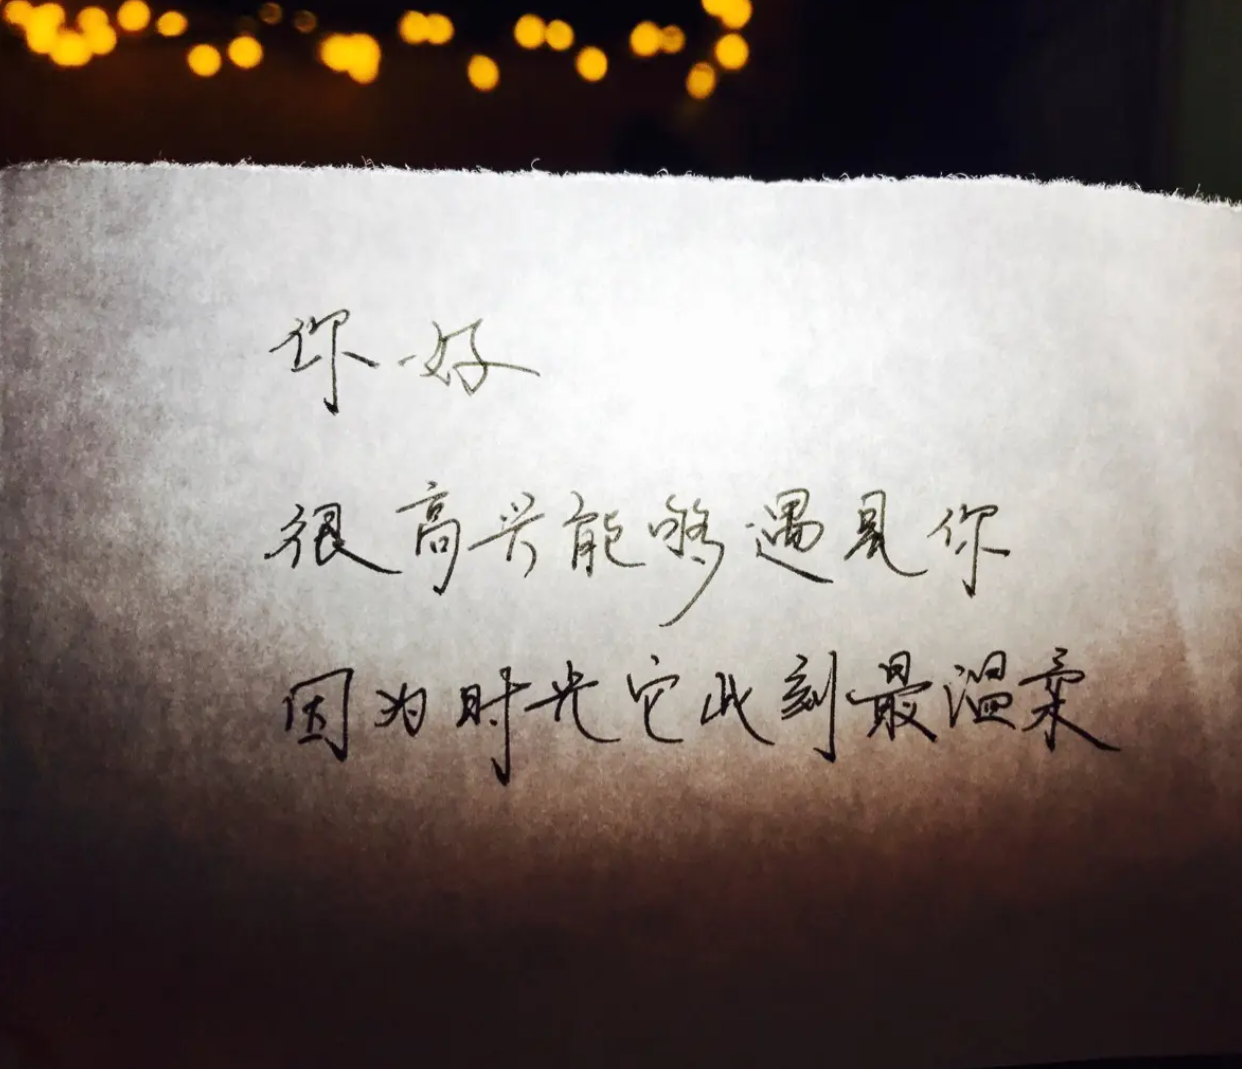 你好
很高兴能够遇见你
因为时光它此刻最温柔